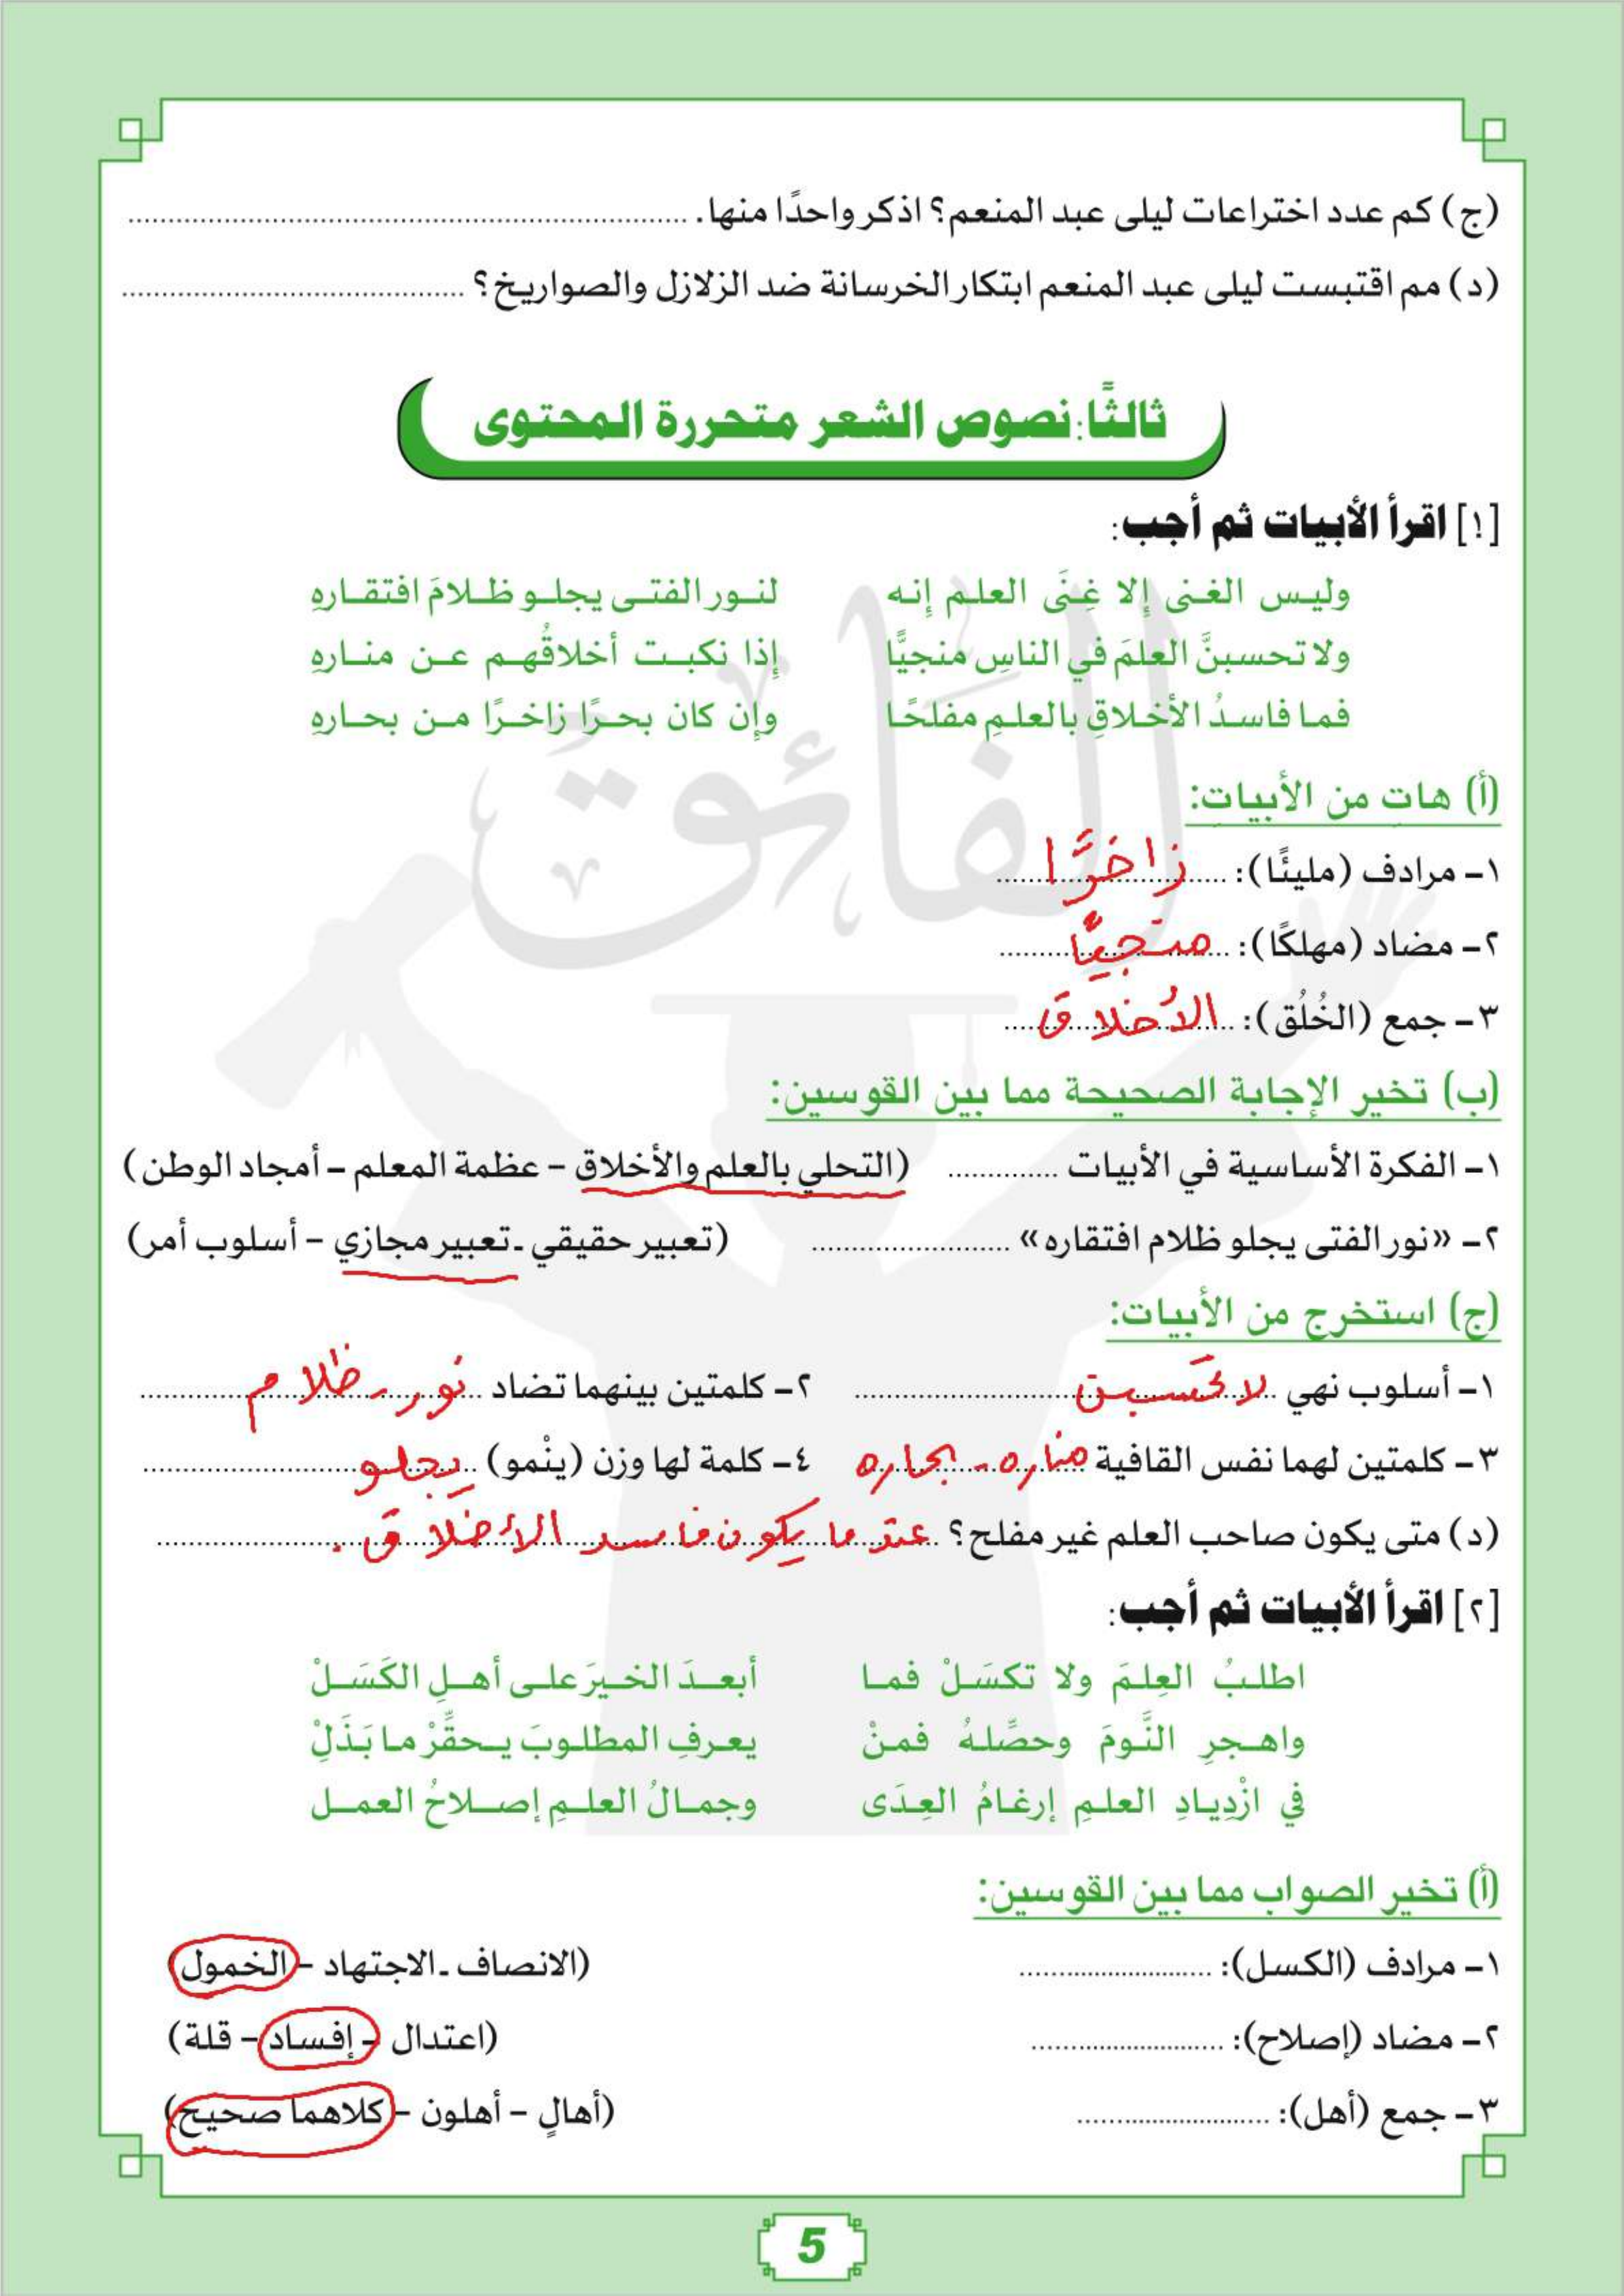 (ج) كم عدد اختراعات ليلى عبد المنعم؟ اذكر واحدًا منها. ......................
(د) مم اقتبست ليلى عبد المنعم ابتكار الخرسانة ضد الزلازل والصواريخ؟ ......................
ثالثًا: نصوص الشعر متحررة المحتوى
[١] اقرأ الأبيات ثم أجب:
وليس الغنى إلا غِنَى العلم إنه لنور الفتى يجلو ظلامَ افتقارهِ
ولا تحسبنَّ العلمَ في الناسِ منجيًّا إذا نكبت أخلاقُهم عن منارهِ
فما فاسدُ الأخلاقِ بالعلمِ مفلحًا وإن كان بحرًا زاخرًا من بحارهِ
الفائق
(أ) هات من الأبيات:
١- مرادف (مليئًا): زاخرًا
٢- مضاد (مهلكًا): منجيًّا
٣- جمع (الخُلُق): الأخلاق
(ب) تخير الإجابة الصحيحة مما بين القوسين:
١- الفكرة الأساسية في الأبيات .............. (التحلي بالعلم والأخلاق - عظمة المعلم - أمجاد الوطن)
٢- «نور الفتى يجلو ظلام افتقاره» ...................... (تعبير حقيقي - تعبير مجازي - أسلوب أمر)
(ج) استخرج من الأبيات:
١- أسلوب نهي لا تحسبن ٢- كلمتين بينهما تضاد نور - ظلام
٣- كلمتين لهما نفس القافية مناره - بحاره ٤- كلمة لها وزن (ينْمو) يجلو
(د) متى يكون صاحب العلم غير مفلح؟ عندما يكون فاسد الأخلاق .
[٢] اقرأ الأبيات ثم أجب:
اطلبُ العِلمَ ولا تكسَلْ فما أبعدَ الخيرَ على أهلِ الكَسَلْ
واهجرِ النَّومَ وحصِّلهُ فمنْ يعرفِ المطلوبَ يحقِّرْ ما بَذَلْ
في ازْدِيادِ العلمِ إرغامُ العِدَى وجمالُ العلمِ إصلاحُ العمل
(أ) تخير الصواب مما بين القوسين:
١- مرادف (الكسل): ...................... (الانصاف - الاجتهاد - الخمول)
٢- مضاد (إصلاح): ...................... (اعتدال - إفساد - قلة)
٣- جمع (أهل): ...................... (أهالٍ - أهلون - كلاهما صحيح)
5